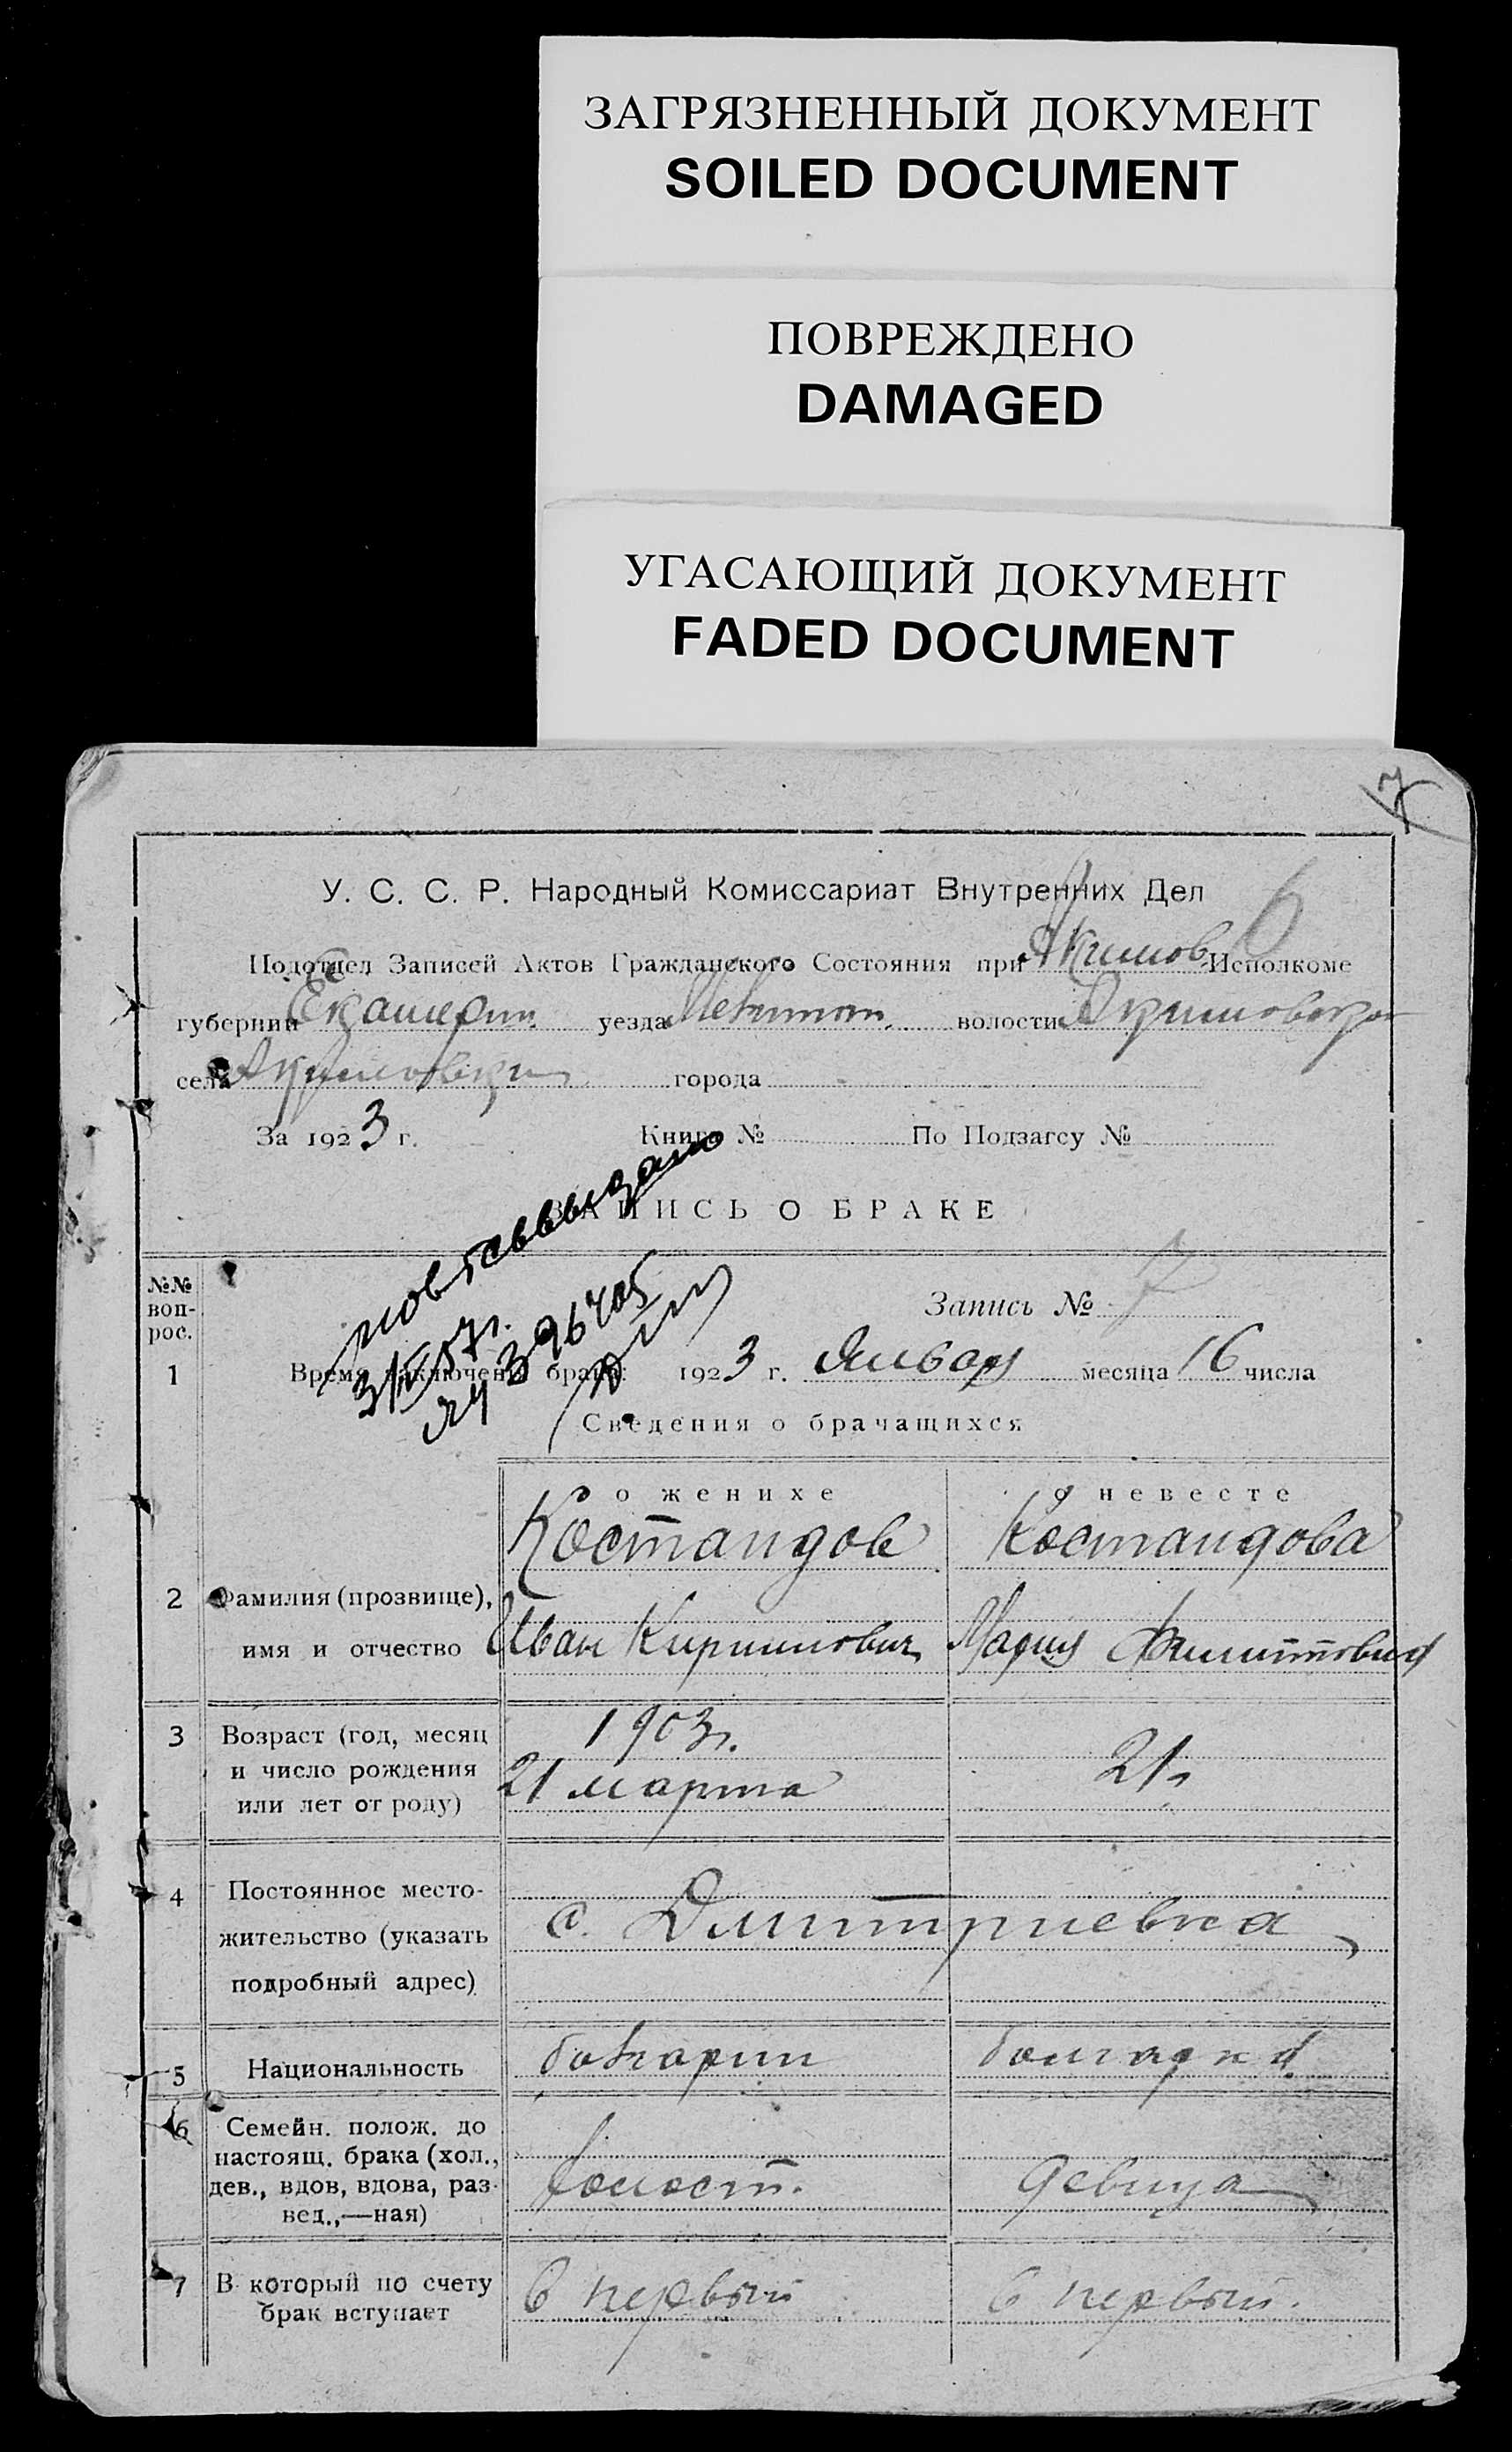 ЗАГРЯЗНЕННЫЙ ДОКУМЕНТ
SOILED DOCUMENT
ПОВРЕЖДЕНО
DAMAGED
УГАСАЮЩИЙ ДОКУМЕНТ
FADED DOCUMENT
7
У. С. С. Р. Народный Комиссариат Внутренних Дел
6
Подотдел Записей Актов Гражданского Состояния при Акимов. Исполкоме
губернии Екатерин. уезда волости Акимовской
села города
За 1923 г. Книга № По Подзагсу №
ЗАПИСЬ О БРАКЕ
повт. св. выдано
3/IV 57г.
396705
№№ вопрос.
Запись № 7
1 Время заключения брака: 1923 г. Января месяца 16 числа
Сведения о брачащихся
о женихе о невесте
Костандов Костандова
2 Фамилия (прозвище), имя и отчество Иван Кириллович Мария
3 Возраст (год, месяц и число рождения или лет от роду) 1903г. 21 марта 21г.
4 Постоянное местожительство (указать подробный адрес) с. Дмитриевка
5 Национальность болгарин болгарка
6 Семейн. полож. до настоящ. брака (хол., дев., вдов, вдова, развед.,—ная) холост. девица
7 В который по счету брак вступает в первый в первый.